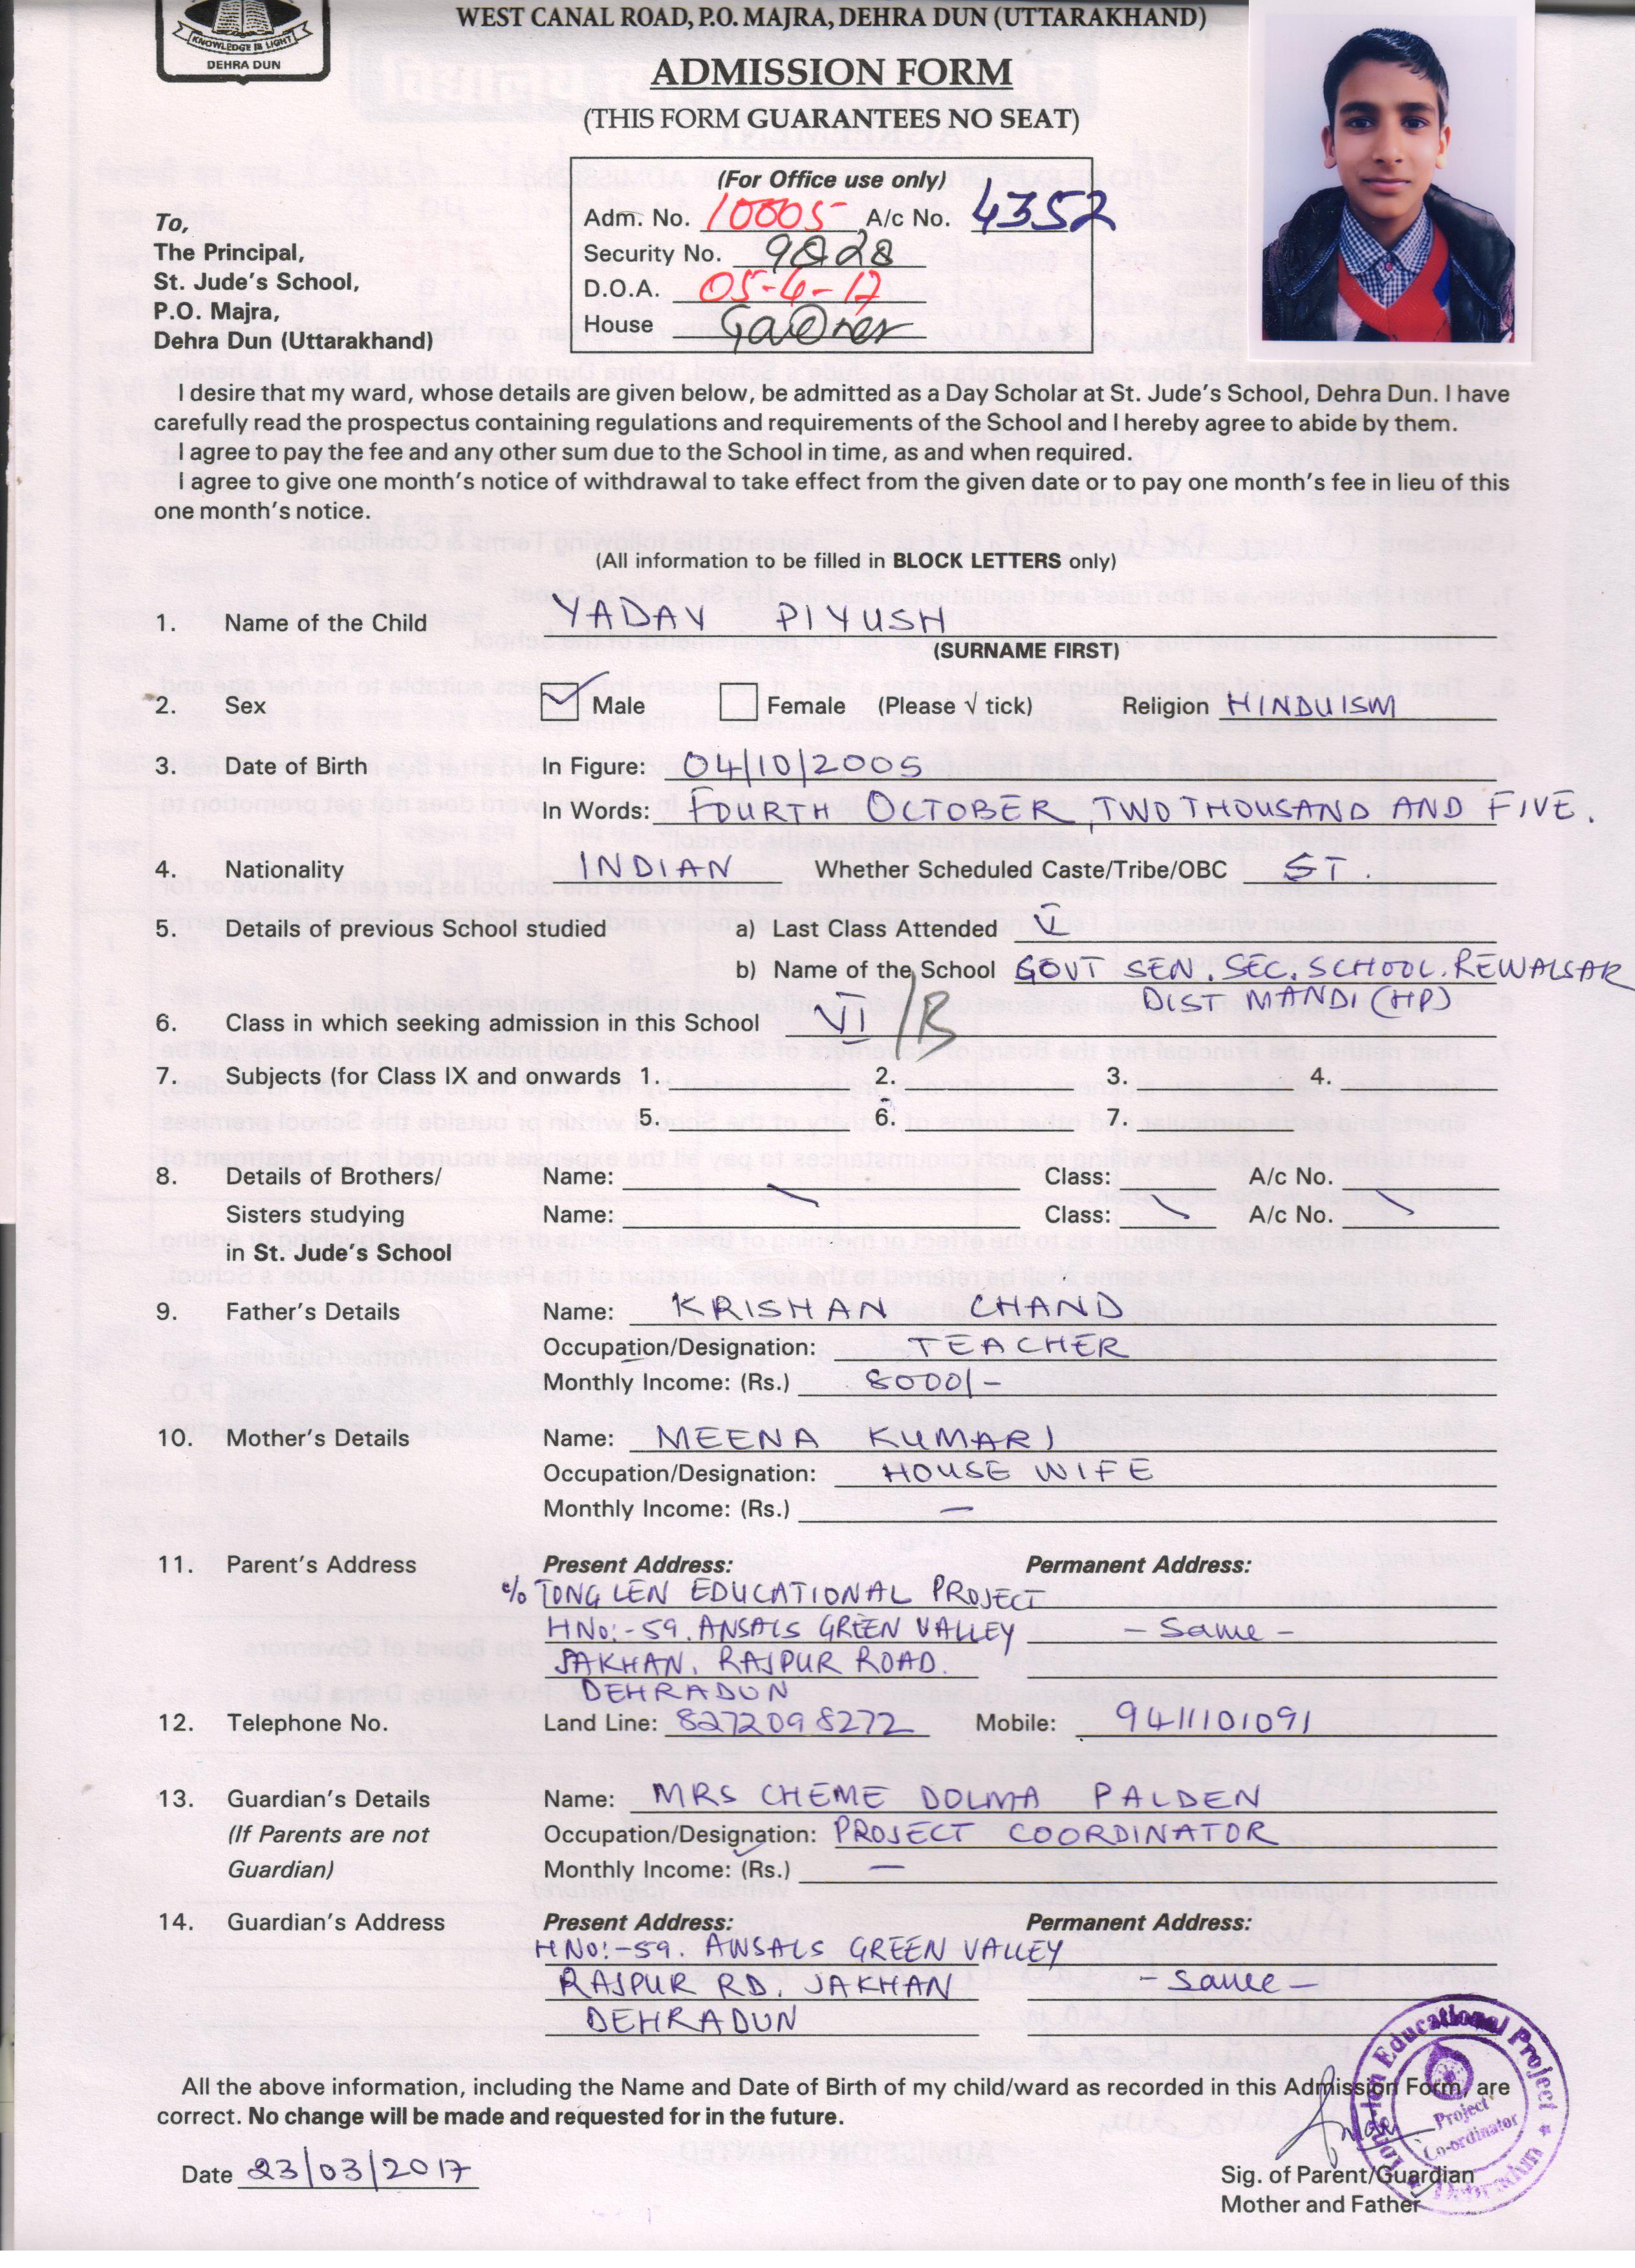 KNOWLEDGE IS LIGHT
DEHRA DUN
WEST CANAL ROAD, P.O. MAJRA, DEHRA DUN (UTTARAKHAND)
ADMISSION FORM
(THIS FORM GUARANTEES NO SEAT)
(For Office use only)
Adm. No. 10005 A/c No. 4352
Security No. 9828
D.O.A. 05-4-17
House
To,
The Principal,
St. Jude's School,
P.O. Majra,
Dehra Dun (Uttarakhand)
I desire that my ward, whose details are given below, be admitted as a Day Scholar at St. Jude's School, Dehra Dun. I have
carefully read the prospectus containing regulations and requirements of the School and I hereby agree to abide by them.
I agree to pay the fee and any other sum due to the School in time, as and when required.
I agree to give one month's notice of withdrawal to take effect from the given date or to pay one month's fee in lieu of this
one month's notice.
(All information to be filled in BLOCK LETTERS only)
1. Name of the Child YADAV PIYUSH
(SURNAME FIRST)
2. Sex Male Female (Please √ tick) Religion HINDUISM
3. Date of Birth In Figure: 04/10/2005
In Words: FOURTH OCTOBER, TWO THOUSAND AND FIVE.
4. Nationality INDIAN Whether Scheduled Caste/Tribe/OBC ST.
5. Details of previous School studied a) Last Class Attended V
b) Name of the School GOVT SEN. SEC. SCHOOL. REWALSAR
DIST MANDI (HP)
6. Class in which seeking admission in this School VI/B
7. Subjects (for Class IX and onwards 1. 2. 3. 4.
5. 6. 7.
8. Details of Brothers/ Name: Class: A/c No.
Sisters studying Name: Class: A/c No.
in St. Jude's School
9. Father's Details Name: KRISHAN CHAND
Occupation/Designation: TEACHER
Monthly Income: (Rs.) 8000/-
10. Mother's Details Name: MEENA KUMARI
Occupation/Designation: HOUSE WIFE
Monthly Income: (Rs.) —
11. Parent's Address Present Address: Permanent Address:
c/o TONG LEN EDUCATIONAL PROJECT
HNo:-59. ANSALS GREEN VALLEY - Same -
JAKHAN. RAJPUR ROAD.
DEHRADUN
12. Telephone No. Land Line: 8272098272 Mobile: 9411101091
13. Guardian's Details Name: MRS CHEME DOLMA PALDEN
(If Parents are not Occupation/Designation: PROJECT COORDINATOR
Guardian) Monthly Income: (Rs.) —
14. Guardian's Address Present Address: Permanent Address:
HNO:-59. ANSALS GREEN VALLEY
RAJPUR RD. JAKHAN - Same -
DEHRADUN
All the above information, including the Name and Date of Birth of my child/ward as recorded in this Admission Form, are
correct. No change will be made and requested for in the future.
Date 23/03/2017
Sig. of Parent/Guardian
Mother and Father
Tong-Len Educational Project
Project
Co-ordinator
Dehradun